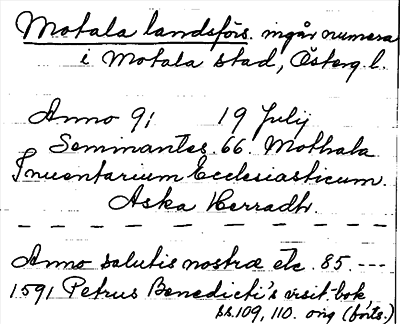 Motala landsförs. ingår numera
i Motala stad, Österg.l.
Anno 91 19 Julij
Seminantes. 66. Mothala
Inuentarium Ecclesiasticum.
Aska Herradh.
Anno salutis nostræ etc. 85. ---
1591 Petrus Benedicti's visit. bok
ss. 109, 110. orig (forts.)